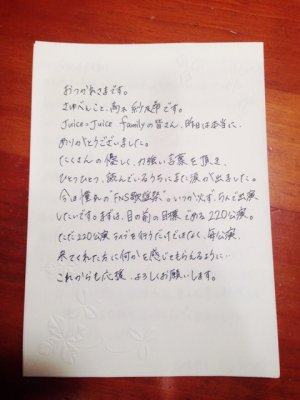 おつかれさまです。
さゆべえこと、高木 紗友希です。
Juice=Juice familyの皆さん、昨日は本当に、
ありがとうございました。
たくさんの優しく、力強い言葉を頂き、
ひとつひとつ、読んでいるうちにまた涙が出ました。
今は憧れの"FNS歌謡祭"。いつか必ず、5人で出演
したいです。まずは、目の前の目標である220公演。
ただ220公演ライブを行うだけではなく、毎公演、
来てくれた方に何かを感じてもらえるように…
これからも応援、よろしくお願いします。